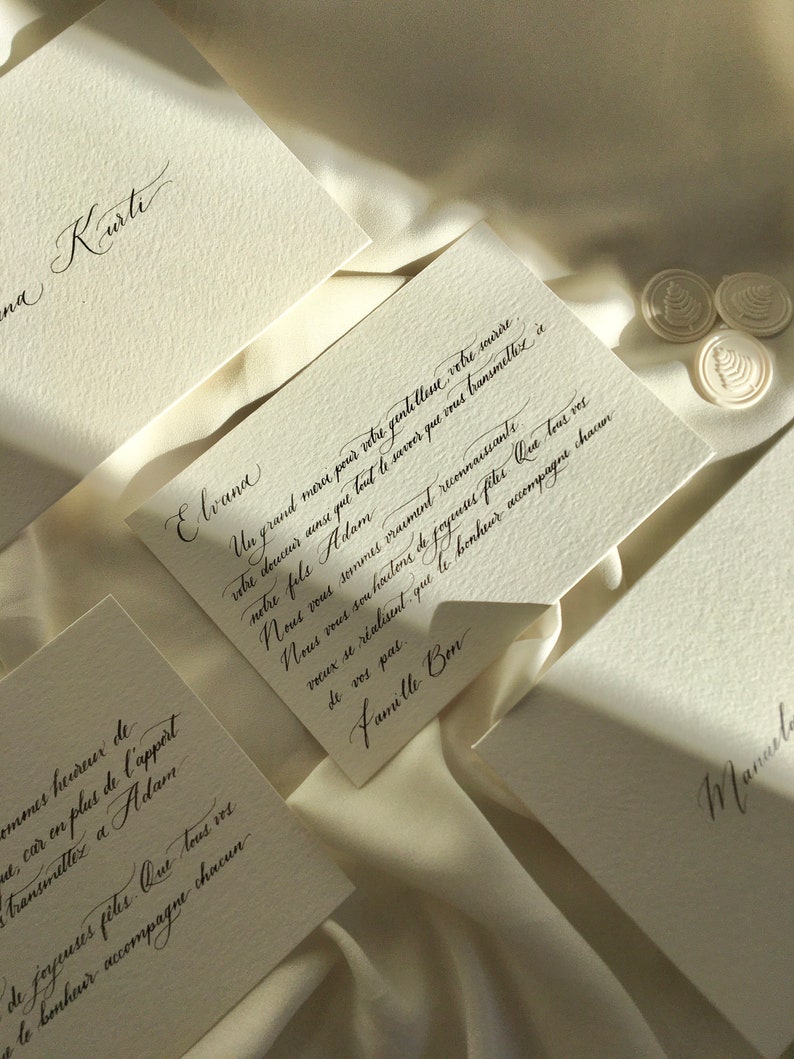 Kurti
Elvana
Un grand merci pour votre gentillesse, votre sourire,
votre douceur ainsi que tout le savoir que vous transmettez à
notre fils Adam
Nous vous sommes vraiment reconnaissants.
Nous vous souhaitons de joyeuses fêtes. Que tous vos
voeux se réalisent, que le bonheur accompagne chacun
de vos pas.
Famille Bon
ommes heureux de
ue, car en plus de l'apport
s transmettez à Adam
de joyeuses fêtes. Que tous vos
le bonheur accompagne chacun
Manuela